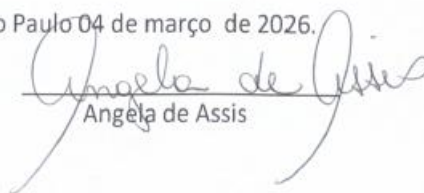 o Paulo 04 de março de 2026.
Angela de Assis
Angela de Assis